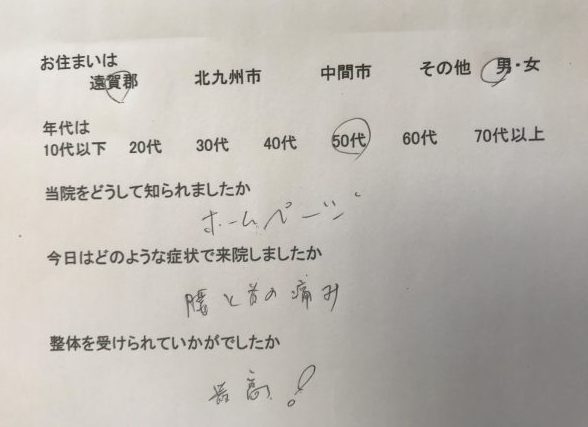 お住まいは
遠賀郡 北九州市 中間市 その他 男・女
年代は
10代以下 20代 30代 40代 50代 60代 70代以上
当院をどうして知られましたか
ホームページ
今日はどのような症状で来院しましたか
腰と首の痛み
整体を受けられていかがでしたか
最高!